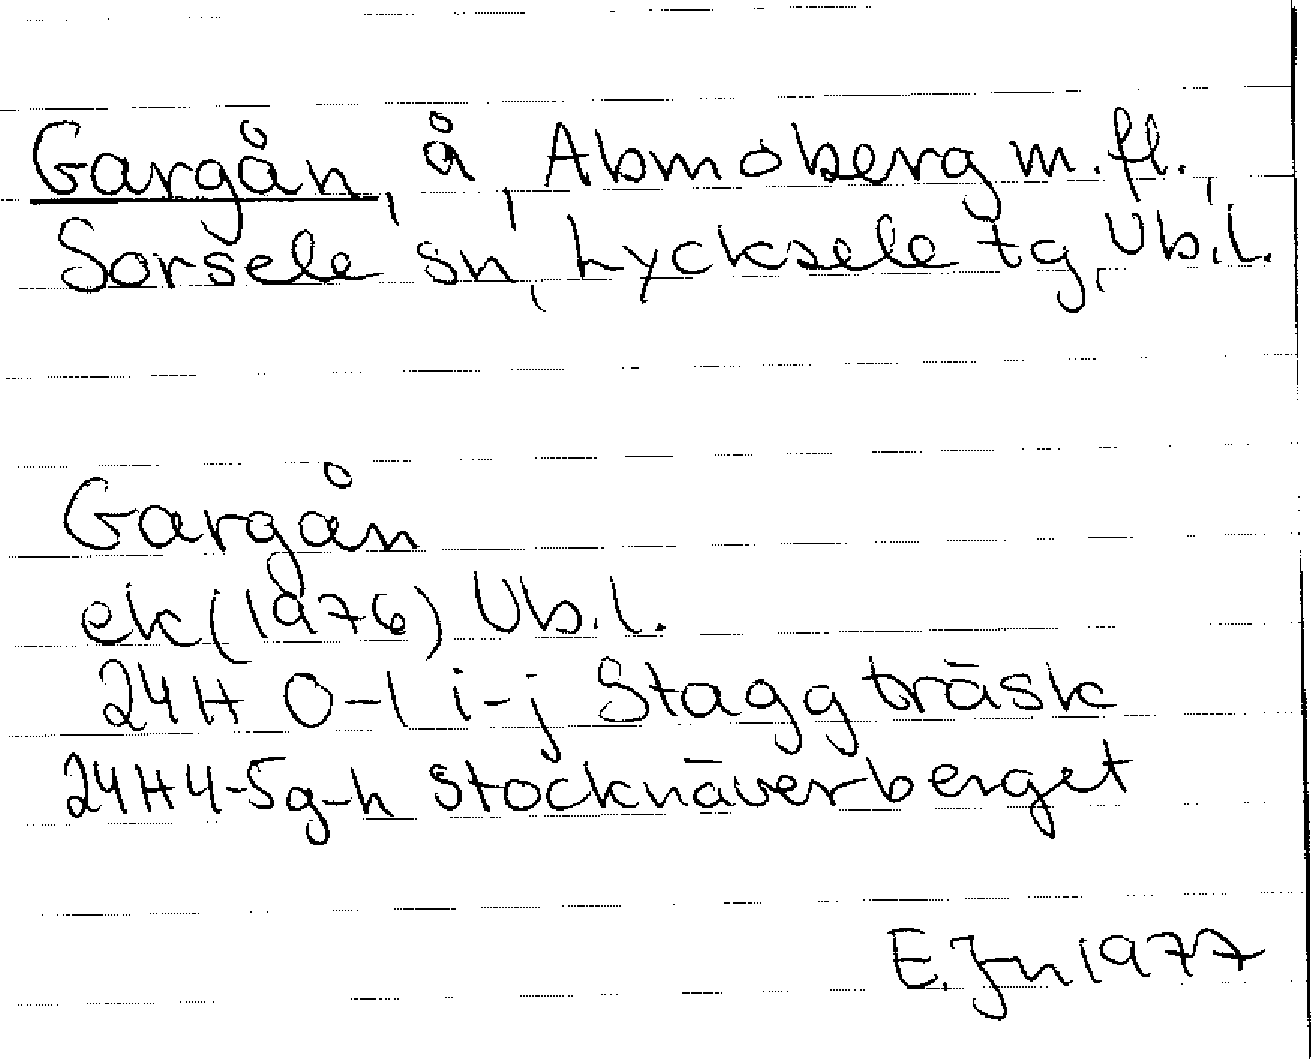 Gargån, å, Abmoberg m.fl.,
Sorsele sn, Lycksele tg, Vb.l.
Gargån
ek (1976) Vb.l.
24H 0-1 i-j Staggträsk
24H4-5g-h Stocknäverberget
E. Jn 1977